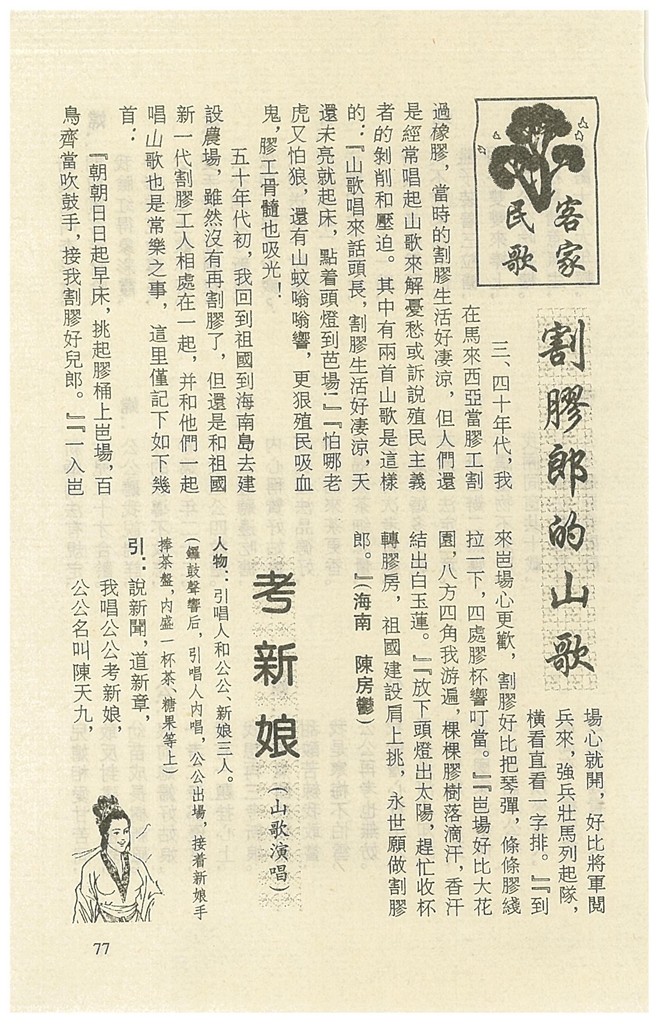 客家
民歌
割膠郎的山歌
三、四十年代，我
在馬來西亞當膠工割
過橡膠，當時的割膠生活好凄涼，但人們還
是經常唱起山歌來解憂愁或訴說殖民主義
者的剝削和壓迫。其中有兩首山歌是這樣
的：『山歌唱來話頭長，割膠生活好凄涼，天
還未亮就起床，點着頭燈到芭場！』『怕哪老
虎又怕狼，還有山蚊嗡嗡響，更狠殖民吸血
鬼，膠工骨髓也吸光！
五十年代初，我回到祖國到海南島去建
設農場，雖然沒有再割膠了，但還是和祖國
新一代割膠工人相處在一起，并和他們一起
唱山歌也是常樂之事，這里僅記下如下幾
首：
『朝朝日日起早床，挑起膠桶上岜場，百
鳥齊當吹鼓手，接我割膠好兒郎。』『一入岜
場心就開，好比將軍閱
兵來，強兵壯馬列起隊，
橫看直看一字排。』『到
來岜場心更歡，割膠好比把琴彈，條條膠綫
拉一下，四處膠杯響叮當。』『岜場好比大花
園，八方四角我游遍，棵棵膠樹落滴汗，香汗
結出白玉蓮。』『放下頭燈出太陽，趕忙收杯
轉膠房，祖國建設肩上挑，永世願做割膠
郎。』（海南　陳房鬱）
考新娘（山歌演唱）
人物：引唱人和公公、新娘三人。
（鑼鼓聲響后，引唱人内唱，公公出場，接着新娘手
捧茶盤，内盛一杯茶、糖果等上）
引：說新聞，道新章，
我唱公公考新娘，
公公名叫陳天九，
77